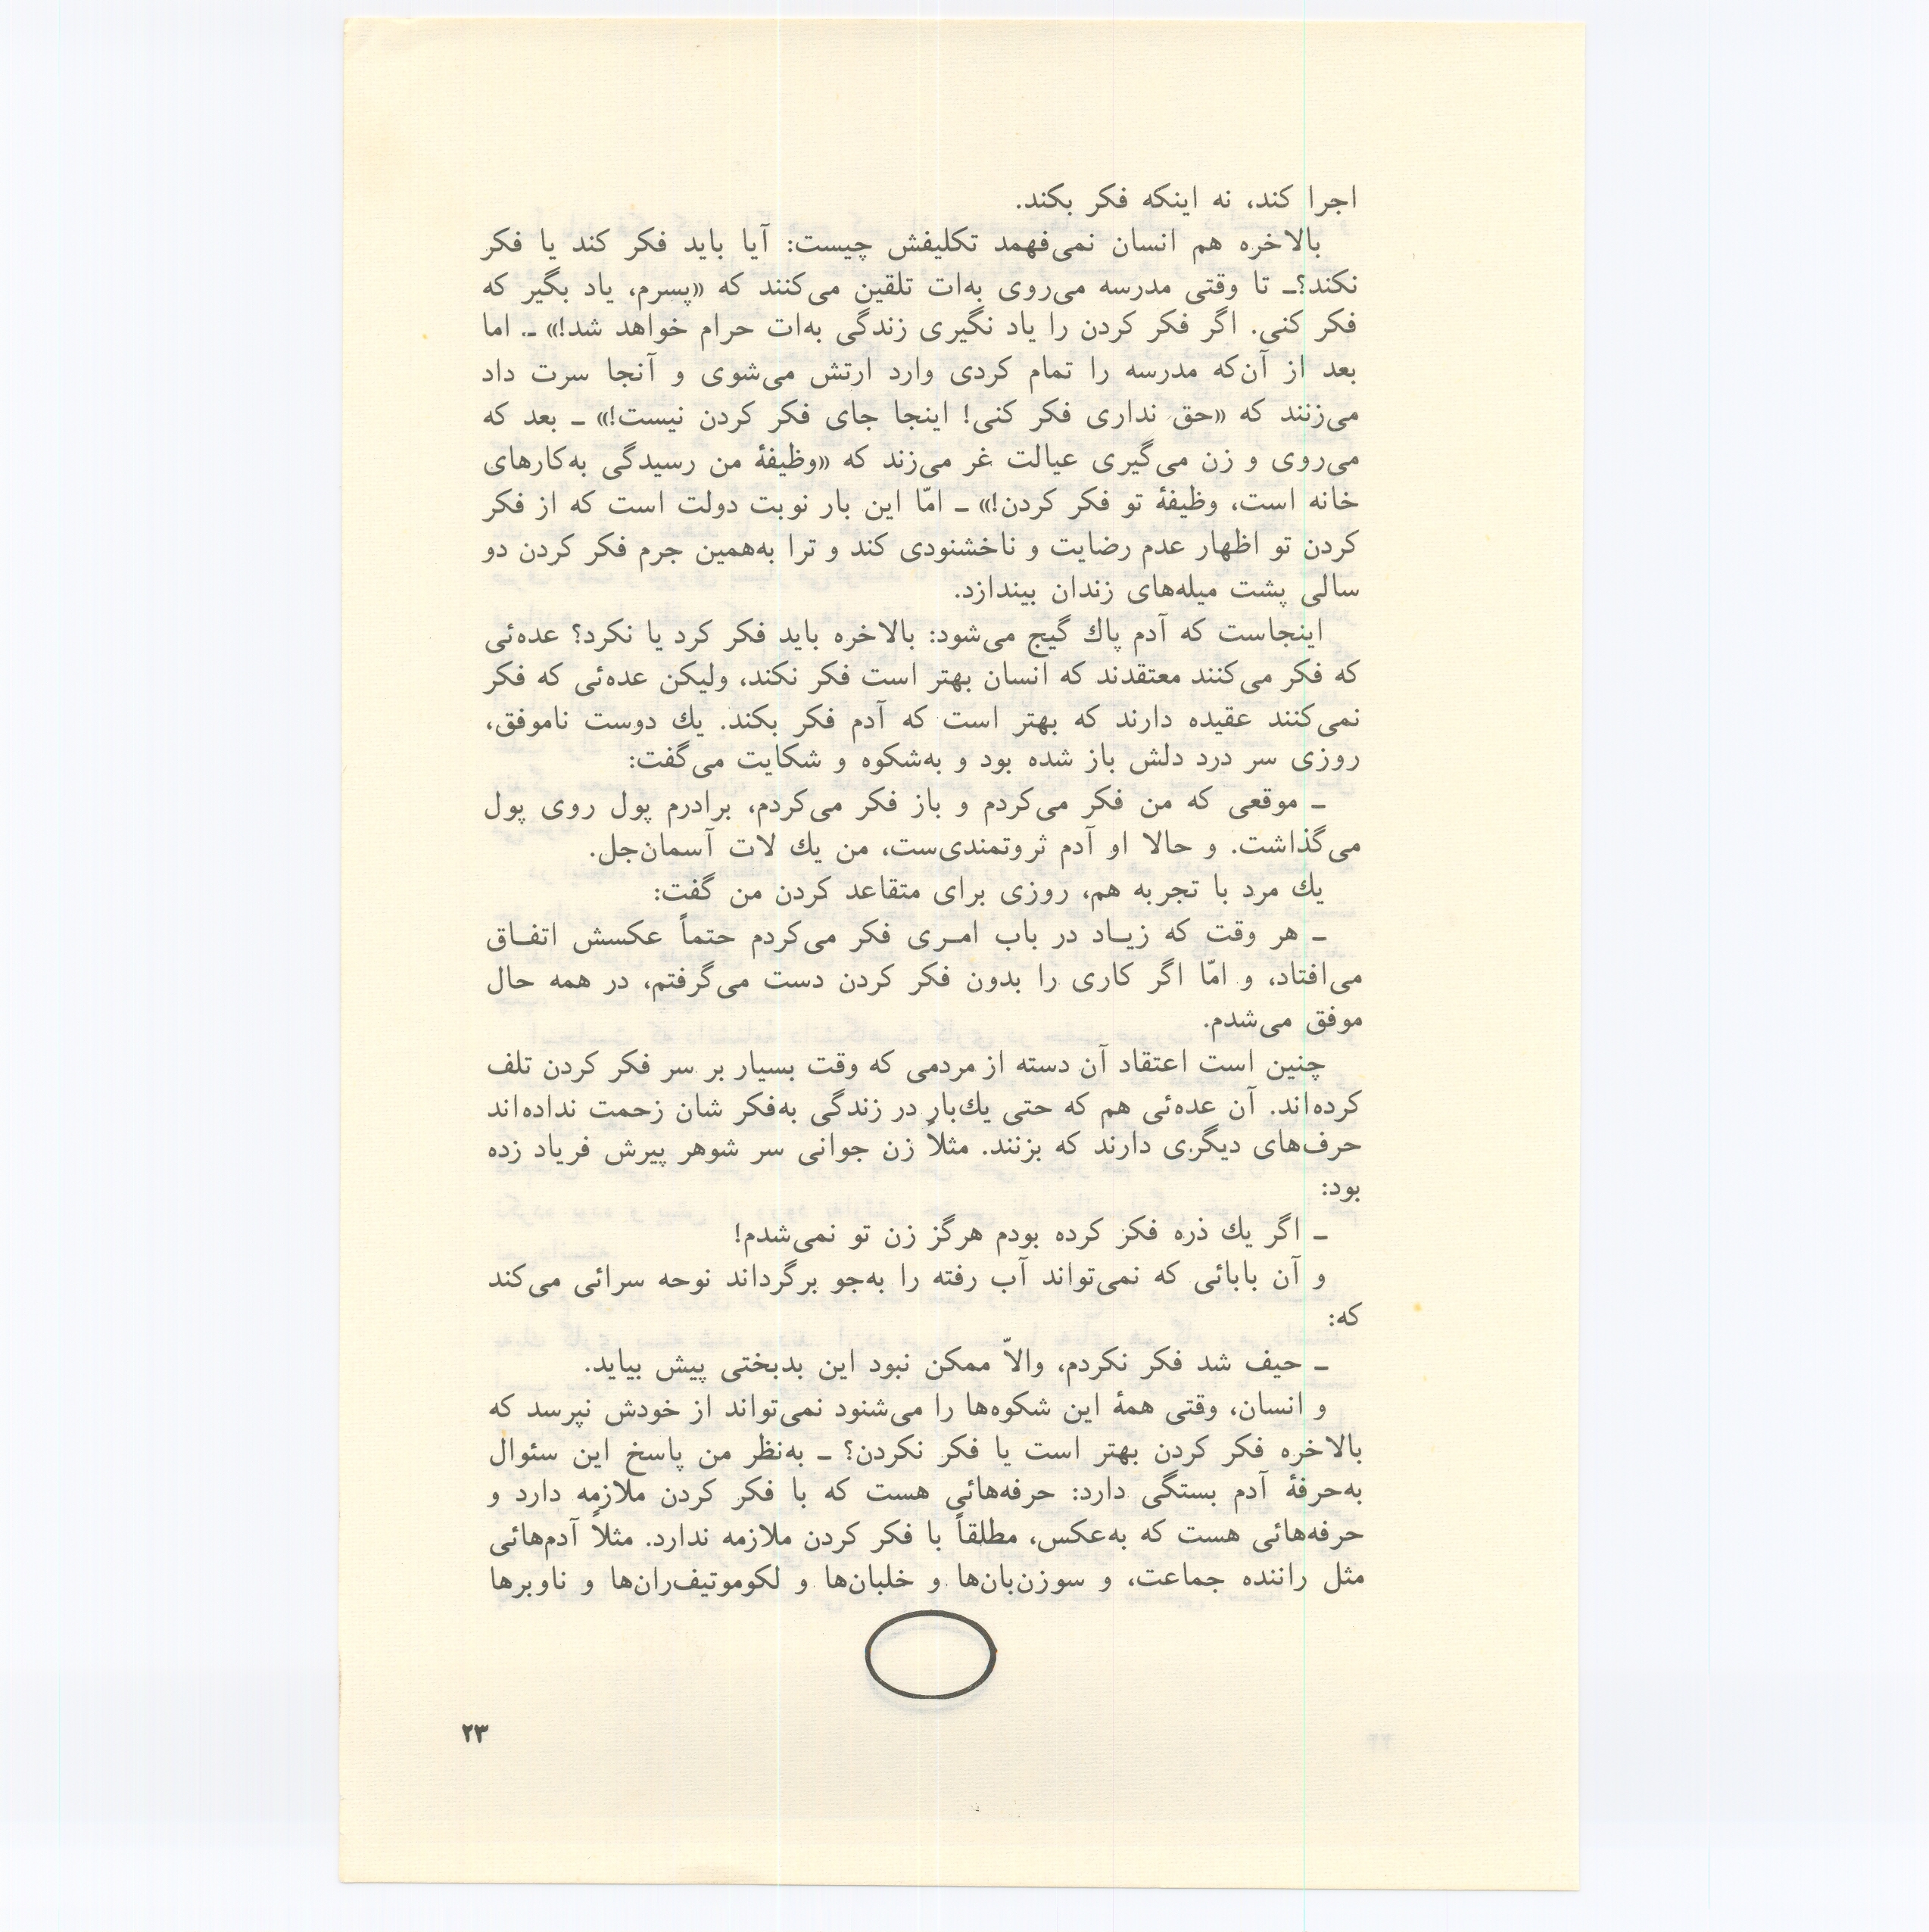 اجرا کند، نه اینکه فکر بکند.
بالاخره هم انسان نمی‌فهمد تکلیفش چیست: آیا باید فکر کند یا فکر
نکند؟ـ تا وقتی مدرسه می‌روی به‌ات تلقین می‌کنند که «پسرم، یاد بگیر که
فکر کنی. اگر فکر کردن را یاد نگیری زندگی به‌ات حرام خواهد شد!» ـ اما
بعد از آن‌که مدرسه را تمام کردی وارد ارتش می‌شوی و آنجا سرت داد
می‌زنند که «حق نداری فکر کنی! اینجا جای فکر کردن نیست!» ـ بعد که
می‌روی و زن می‌گیری عیالت غر می‌زند که «وظیفهٔ من رسیدگی به‌کارهای
خانه است، وظیفهٔ تو فکر کردن!» ـ امّا این بار نوبت دولت است که از فکر
کردن تو اظهار عدم رضایت و ناخشنودی کند و ترا به‌همین جرم فکر کردن دو
سالی پشت میله‌های زندان بیندازد.
اینجاست که آدم پاك گیج می‌شود: بالاخره باید فکر کرد یا نکرد؟ عده‌ئی
که فکر می‌کنند معتقدند که انسان بهتر است فکر نکند، ولیکن عده‌ئی که فکر
نمی‌کنند عقیده دارند که بهتر است که آدم فکر بکند. یك دوست ناموفق،
روزی سر درد دلش باز شده بود و به‌شکوه و شکایت می‌گفت:
ـ موقعی که من فکر می‌کردم و باز فکر می‌کردم، برادرم پول روی پول
می‌گذاشت. و حالا او آدم ثروتمندی‌ست، من یك لات آسمان‌جل.
یك مرد با تجربه هم، روزی برای متقاعد کردن من گفت:
ـ هر وقت که زیــاد در باب امــری فکر می‌کردم حتماً عکسش اتفــاق
می‌افتاد، و امّا اگر کاری را بدون فکر کردن دست می‌گرفتم، در همه حال
موفق می‌شدم.
چنین است اعتقاد آن دسته از مردمی که وقت بسیار بر سر فکر کردن تلف
کرده‌اند. آن عده‌ئی هم که حتی یك‌بار در زندگی به‌فکر شان زحمت نداده‌اند
حرف‌های دیگری دارند که بزنند. مثلاً زن جوانی سر شوهر پیرش فریاد زده
بود:
ـ اگر یك ذره فکر کرده بودم هرگز زن تو نمی‌شدم!
و آن بابائی که نمی‌تواند آب رفته را به‌جو برگرداند نوحه سرائی می‌کند
که:
ـ حیف شد فکر نکردم، والاّ ممکن نبود این بدبختی پیش بیاید.
و انسان، وقتی همهٔ این شکوه‌ها را می‌شنود نمی‌تواند از خودش نپرسد که
بالاخره فکر کردن بهتر است یا فکر نکردن؟ ـ به‌نظر من پاسخ این سئوال
به‌حرفهٔ آدم بستگی دارد: حرفه‌هائی هست که با فکر کردن ملازمه دارد و
حرفه‌هائی هست که به‌عکس، مطلقاً با فکر کردن ملازمه ندارد. مثلاً آدم‌هائی
مثل راننده جماعت، و سوزن‌بان‌ها و خلبان‌ها و لکوموتیف‌ران‌ها و ناوبرها
۲۳